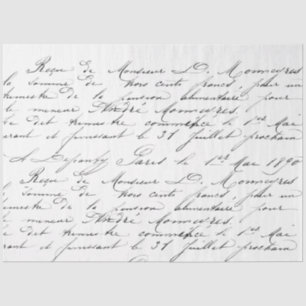 Reçu de Monsieur D. Monnereres
la somme de trois cents francs, pour un
trimestre de la pension alimentaire pour
le mineur André Monnereres.
Le dit trimestre commence le 1er Mai
rant et finissant le 31 Juillet prochain
Paris le 1er Mai 1890
Reçu de Monsieur D. Monnereres
somme de trois cents francs, pour un
mestre de la pension alimentaire pour
le mineur André Monnereres.
Le dit trimestre commence le 1er Mai
rant et finissant le 31 Juillet prochain